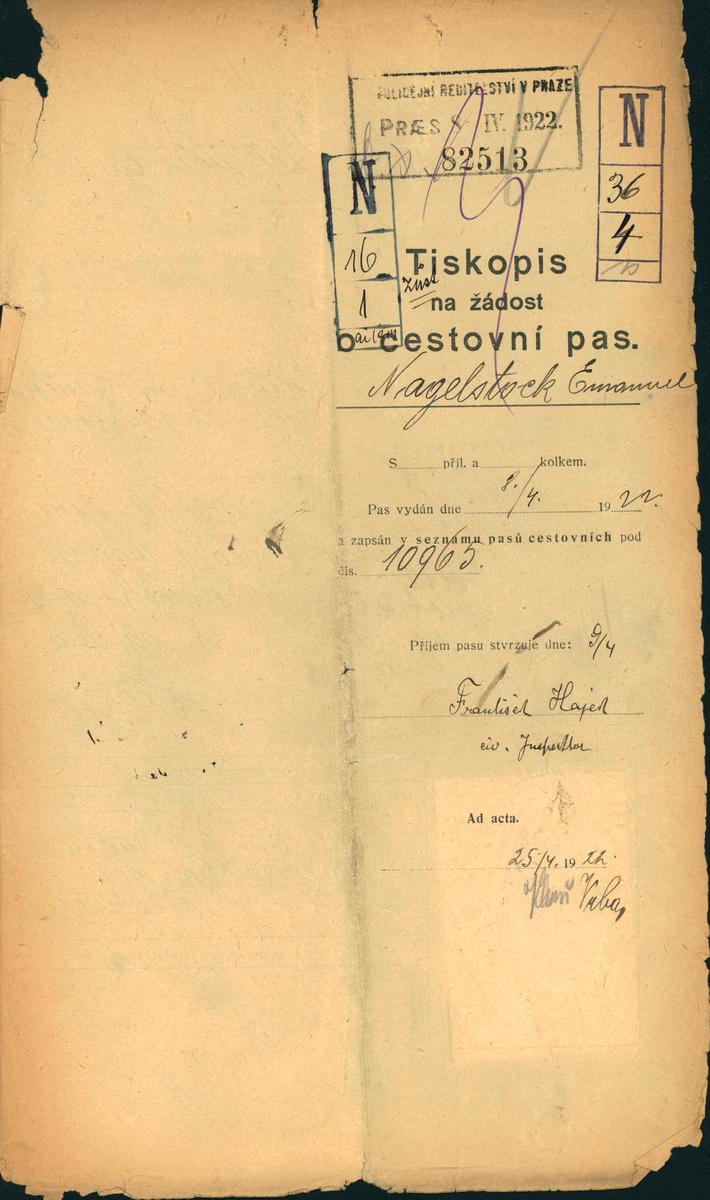 POLICEJNÍ ŘEDITELSTVÍ V PRAZE
PRÆS 8 IV. 1922.
82513
N
36
4
N
16
1
Tiskopis
na žádost
o cestovní pas.
Nagelstock Emanuel
S příl. a kolkem.
Pas vydán dne 8./4. 1922.
a zapsán v seznamu pasů cestovních pod
čís. 10965.
Příjem pasu stvrzuje dne: 9/4
František Hajek
civ. Inspektor
Ad acta.
25/4. 1922.
Vrba